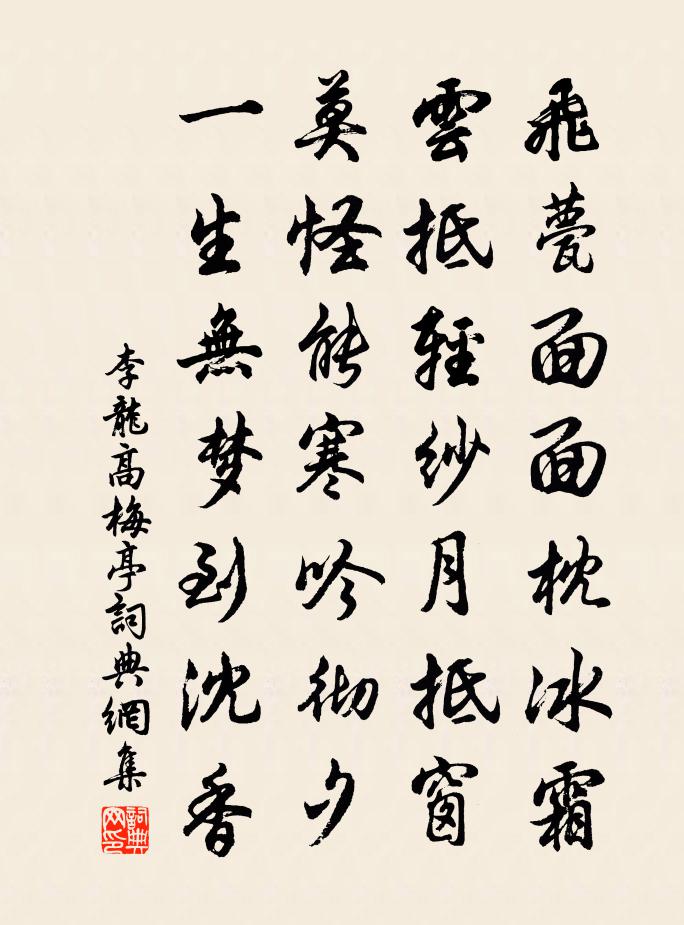 飛甍面面枕冰霜
雲抵輕紗月抵窗
莫怪能寒吟彻夕
一生無梦到沈香
李龍高梅亭詞典網集
詞典网印